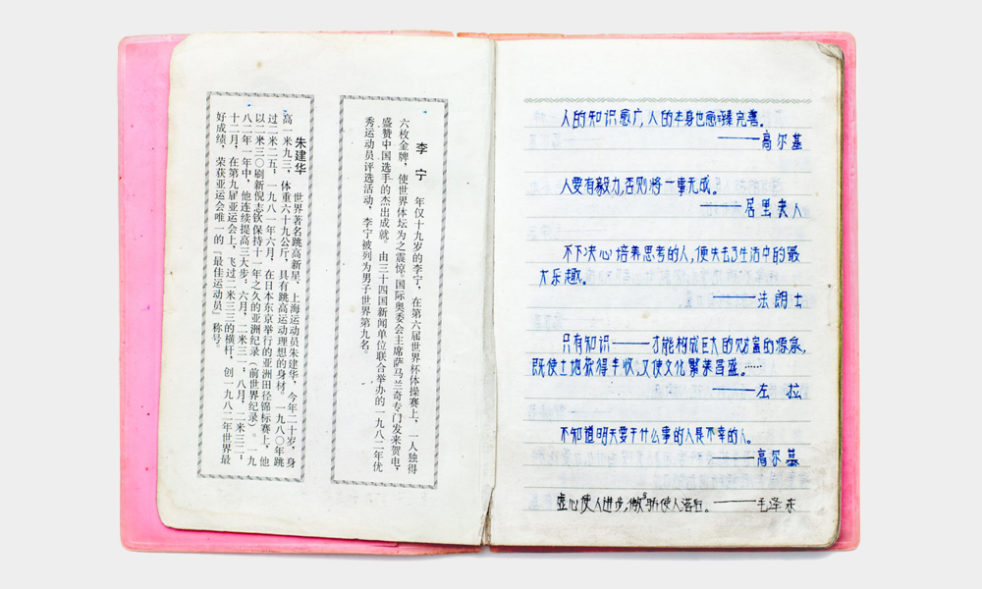 李 宁 年仅十九岁的李宁,在第六届世界杯体操赛上,一人独得
六枚金牌,使世界体坛为之震惊。国际奥委会主席萨马兰奇专门发来贺电,
盛赞中国选手的杰出成就。由三十四国新闻单位联合举办的一九八二年优
秀运动员评选活动,李宁被列为男子世界第九名。
朱建华 世界著名跳高新星、上海运动员朱建华,今年二十岁,身
高一米九三,体重六十九公斤,具有跳高运动理想的身材。一九八〇年跳
过二米二五,一九八一年六月,在日本东京举行的亚洲田径锦标赛上,他
以二米三〇刷新倪志钦保持十一年之久的亚洲纪录(前世界纪录)。一九
八二年一年中,他连续提高三大步:六月,二米三一,八月,二米三二,
十二月,在第九届亚运会上,飞过二米三三的横杆,创一九八二年世界最
好成绩,荣获亚运会唯一的「最佳运动员」称号。
人的知识愈广,人的本身也愈臻完善。
——高尔基
人要有毅力,否则将一事无成。
——居里夫人
不下决心培养思考的人,便失去了生活中的最
大乐趣。
——法朗士
只有知识——才能构成巨大的财富的源泉,
既使土地获得丰收,又使文化繁荣昌盛。……
——左 拉
不知道明天要干什么事的人是不幸的人。
——高尔基
虚心使人进步,傲骄使人落后。——毛泽东